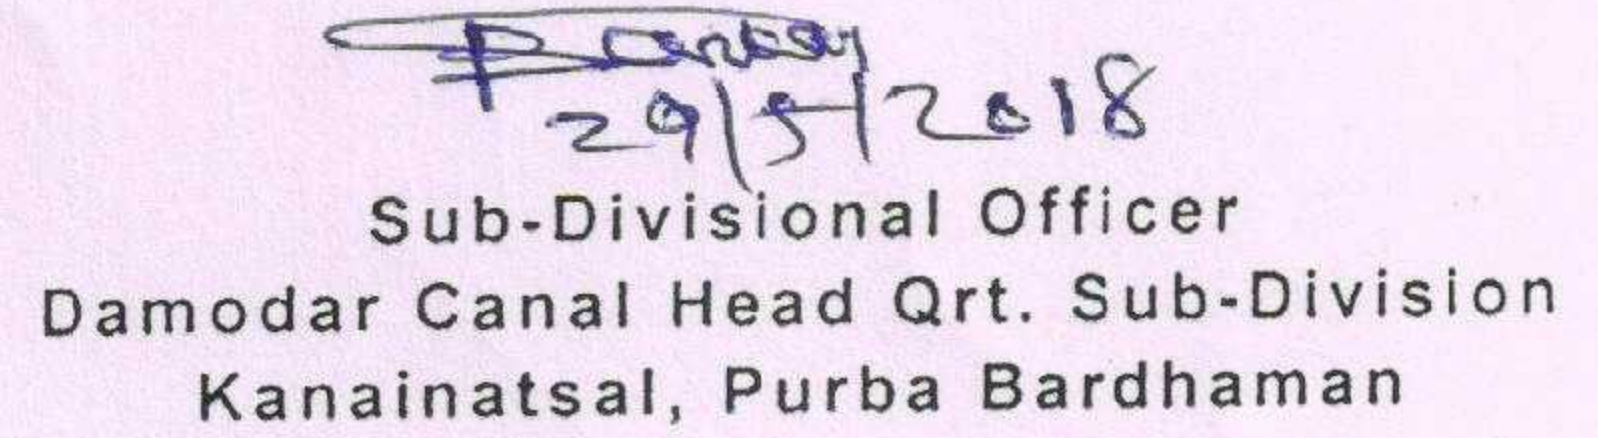 29/5/2018
Sub-Divisional Officer
Damodar Canal Head Qrt. Sub-Division
Kanainatsal, Purba Bardhaman